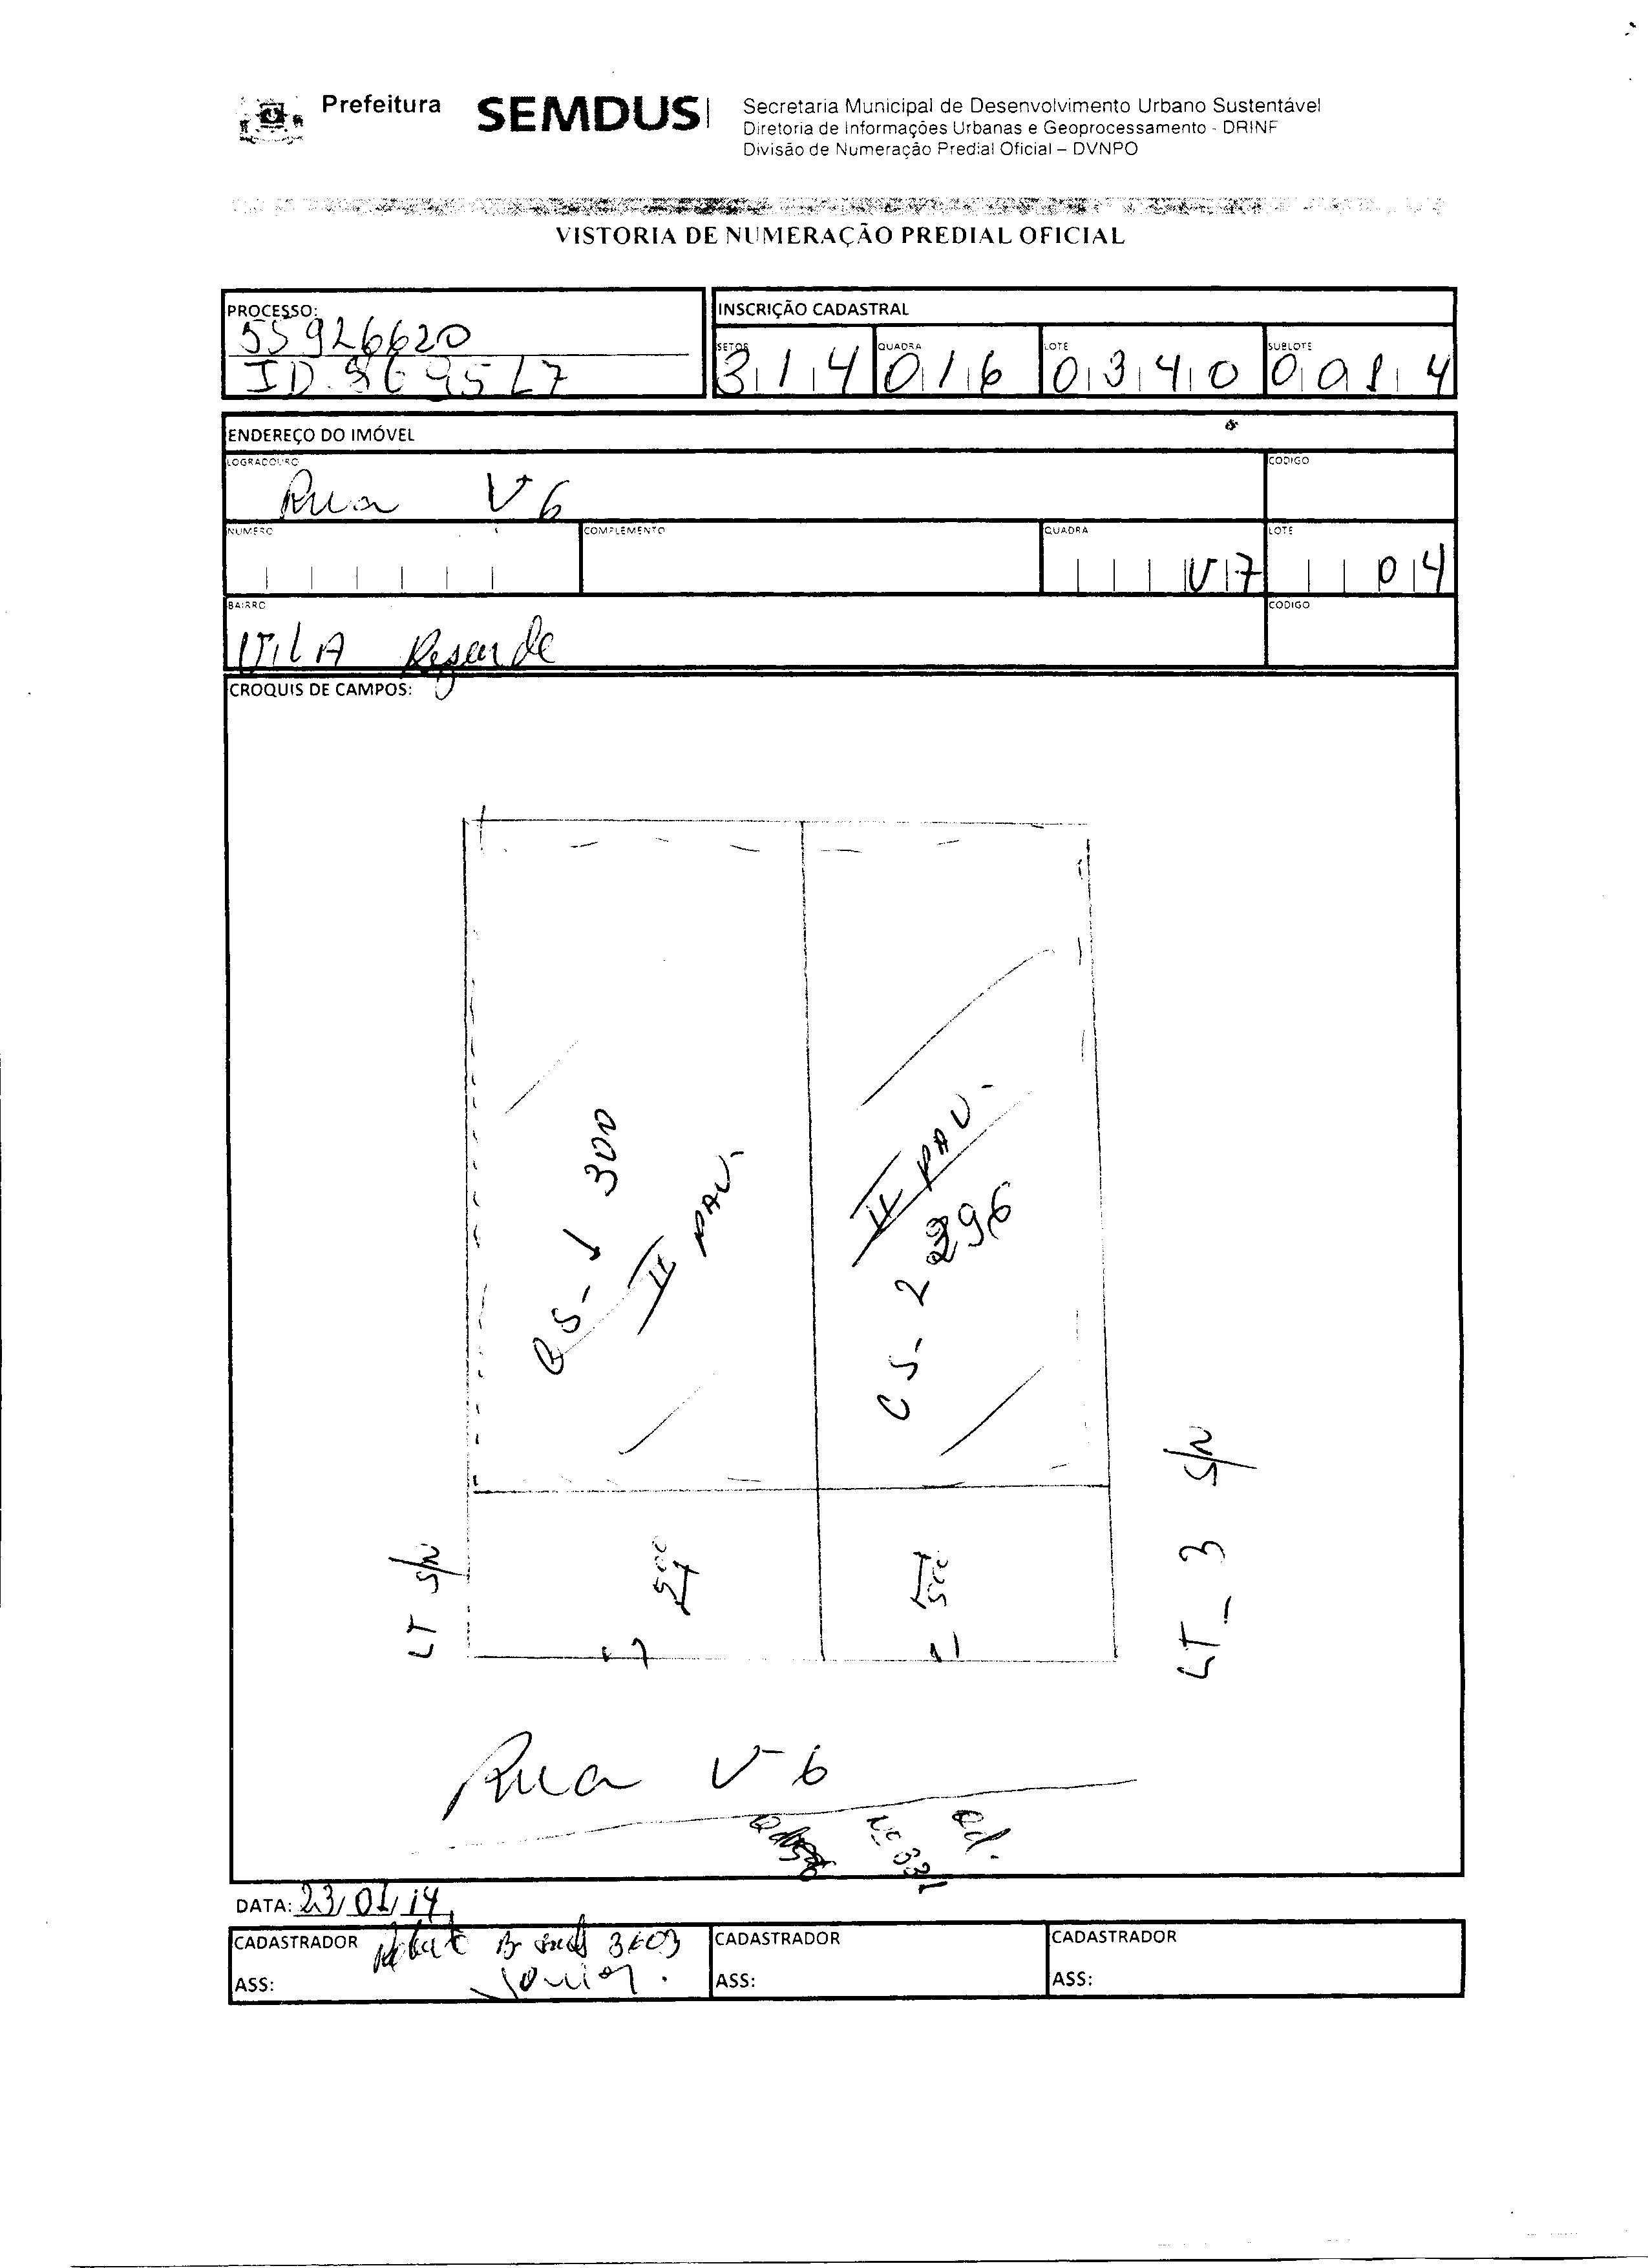 Prefeitura SEMDUS
Secretaria Municipal de Desenvolvimento Urbano Sustentável
Diretoria de Informações Urbanas e Geoprocessamento - DRINF
Divisão de Numeração Predial Oficial – DVNPO
VISTORIA DE NUMERAÇÃO PREDIAL OFICIAL
PROCESSO:
55926620
INSCRIÇÃO CADASTRAL
SETOR QUADRA LOTE SUBLOTE
314 016 0340 001 4
ENDEREÇO DO IMÓVEL
LOGRADOURO CODIGO
Rua V6
NUMERO COMPLEMENTO QUADRA LOTE
V7 04
BAIRRO CODIGO
VilA Resende
CROQUIS DE CAMPOS:
CS-1 300
II PAV.
II PAV.
CS-2 296
LT S/N
500
500
LT_3 S/N
Rua V-6
Qd.
DATA: 23/01/14
CADASTRADOR 3603 CADASTRADOR CADASTRADOR
ASS: Junior. ASS: ASS: